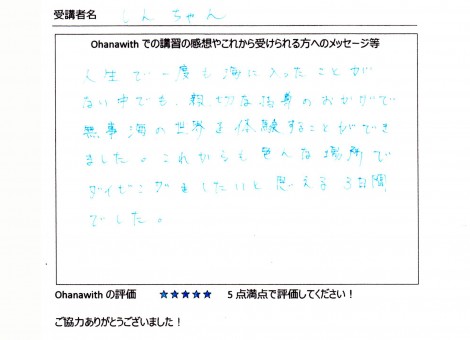 受講者名 しんちゃん
Ohanawith での講習の感想やこれから受けられる方へのメッセージ等
人生で一度も海に入ったことが
ない中でも、親切な指導のおかげで
無事海の世界を体験することができ
ました。これからも色んな場所で
ダイビングをしたいと思える3日間
でした。
Ohanawith の評価 ★★★★★ 5 点満点で評価してください！
ご協力ありがとうございました！